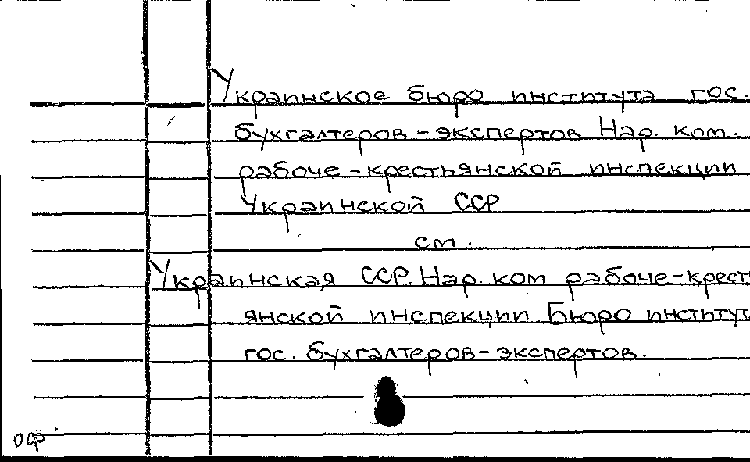 Украинское бюро института гос.
бухгалтеров-экспертов Нар. ком.
рабоче-крестьянской инспекции
Украинской ССР
см.
Украинская ССР. Нар. ком рабоче-крест
янской инспекции. Бюро институт
гос. бухгалтеров-экспертов.
ОФ